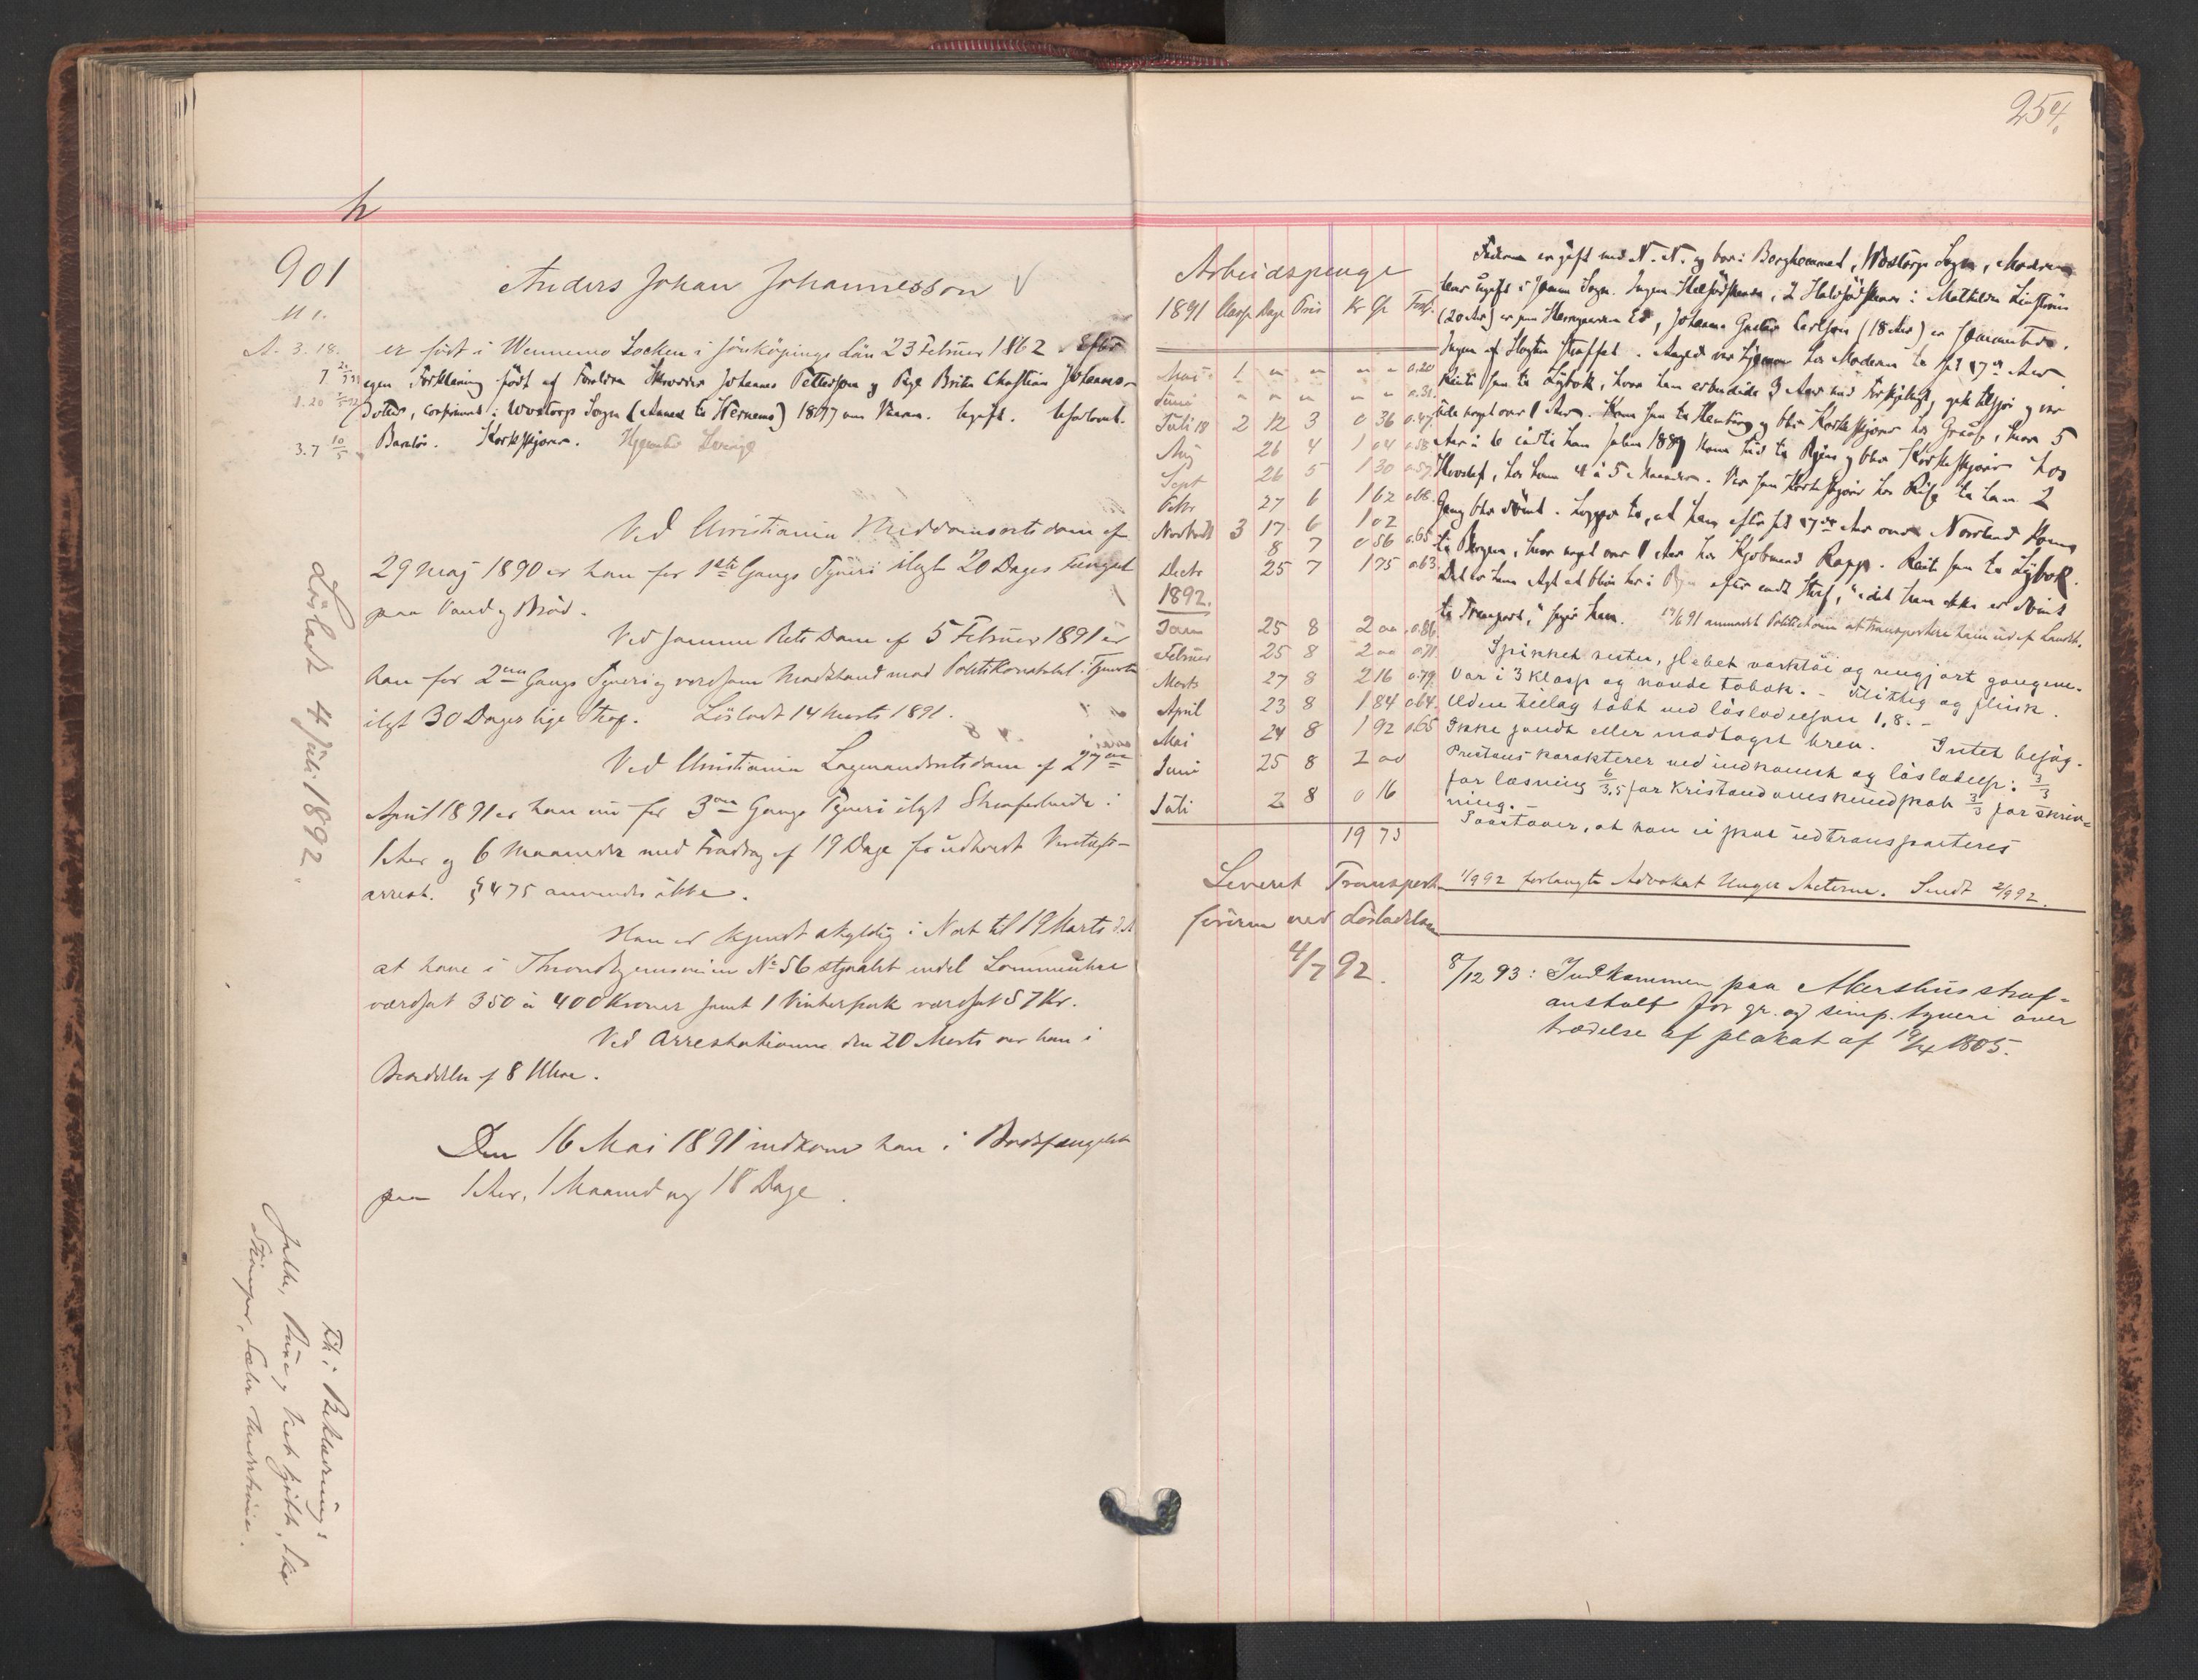 254.
h
901
M 1.
A. 3. 18.
Anders Johan Johannesson
er født i Wernemo Socken i Jönköpings Län 23 Februar 1862. Efter
egen Forklaring født af Forældre Skrædder Johannes Pettersson og Pige Brita Christine Johannes-
dotter, confirmeret i Wostorp Sogn (Annex til Wernemo) 1877 om Vaaren. Ugift.
Barnløs. Korkskjærer. Sverige
Ved Christiania Meddomsretsdom af
29 Maj 1890 er han for 1ste Gangs Tyveri ilagt 20 Dages Fængsel
paa Vand og Brød.
Ved samme Rets Dom af 5 Februar 1891 er
han for 2den Gangs Tyveri og voldsom Modstand mod Politikonstabel i Tjeneste
ilagt 30 Dages lige Straf. Løsladt 14 Marts 1891.
Ved Christiania Lagmandsretsdom af 27de
April 1891 er han nu for 3die Gangs Tyveri ilagt Strafarbeide i
1 Aar og 6 Maaneder med Fradrag af 19 Dage for udholdt Varetægts-
arrest. § 475 anvendes ikke.
Han er kjendt skyldig i Nat til 19 Marts d.A.
at have i Throndhjemsveien No 56 stjaalet endel Lommeuhre
værdsat 350 à 400 Kroner samt 1 Vinterfrak værdsat 57 Kr.
Ved Arrestationen den 20 Marts var han i
Besiddelse af 8 Uhre.
Den 16 Mai 1891 indkom han i Bodsfængslet
paa 1 Aar, 1 Maaned og 18 Dage.
Løsladt 4 Juli 1892.
Fik i Beklædning:
Jakke, Buxe, Vest, Hat, Skjorte,
Strømper, Sæler
Arbeidspenge
1891 Klasse Dage Pris Kr Ør Forh.
Mai 1 " " " " 0.20
Juni " " " " " 0.31
Juli 18 2 12 3 0 36 0.47
Aug 26 4 1 04 0.58
Sept 26 5 1 30 0.57
Oktr 27 6 1 62 0.66
Novbr 3 17 6 1 02
8 7 0 56 0.65
Decbr 25 7 1 75 0.63
1892.
Jan 25 8 2 00 0.86
Februar 25 8 2 00 0.71
Marts 27 8 2 16 0.79
April 23 8 1 84 0.64
Mai 24 8 1 92 0.65
Juni 25 8 2 00
Juli 2 8 0 16
19 73
Leveret Transport-
føreren ved Løsladelsen
4/7 92.
Faderen er gift med N. N. og bor i Borghemmed, Wostorp Sogn, Moderen
lever ugift i samme Sogn. Ingen Helsødskende, 2 Halvsødskende: Mathilda Lindstrøm
(20 Aar) er paa Herregaarden Ed, Johannes Gustav Carlsson (18 Aar) er hjemmeværende.
Ingen af Slægten straffet. Anged. var hjemme hos Moderen til sit 17de Aar.
Reiste saa til Lybæk, hvor han arbeidede 3 Aar ved Forskjelligt, gik tilsjøs og var
ude noget over 1 Aar. Kom saa til Hamburg og blev Korkskjærer hos Graap, hvor 5
Aar à 6 indtil han Julen 1889 kom hid til Byen og blev Korkskjærer hos
Hvoslef, hos ham 4 à 5 Maaneder. Var saa Korkskjærer hos Riise til han 2
Gang blev dømt. Lægger til, at han efter sit 17de Aar over Norrland kom
til Bergen, hvor noget over 1 Aar hos Kjøbmand Rapp. Reiste saa til Lybæk.
Det er hans Agt at blive her i Byen efter endt Straf, "idet han ikke er dømt
til Transport," siger han. 19/6 91 anmodet Politikam. at transportere ham ud af Landet.
Spikket rister, slebet værktøi og rengjort gangene.
Var i 3 klasse og nænde tobak. - Flittig og flink.
Uldne tillæg købt ved løsladelsen 1,8. -
Ikke sendt eller modtaget breve. Intet besøg.
Prestens karakterer ved indkomst og løsladelse: 3/3
for læsning 6/3,5 for kristendomskundskab 3/3 for skriv-
ning. -
Paastaaer, at han ei skal udtransporteres
1/9 92 forlangte Advokat Unger Acterne. Sendt 2/9 92.
8/12 93: Indkommen paa Akershus straf-
anstalt for gr. og simp. tyveri over
trædelse af plakat af 19/4 1805.